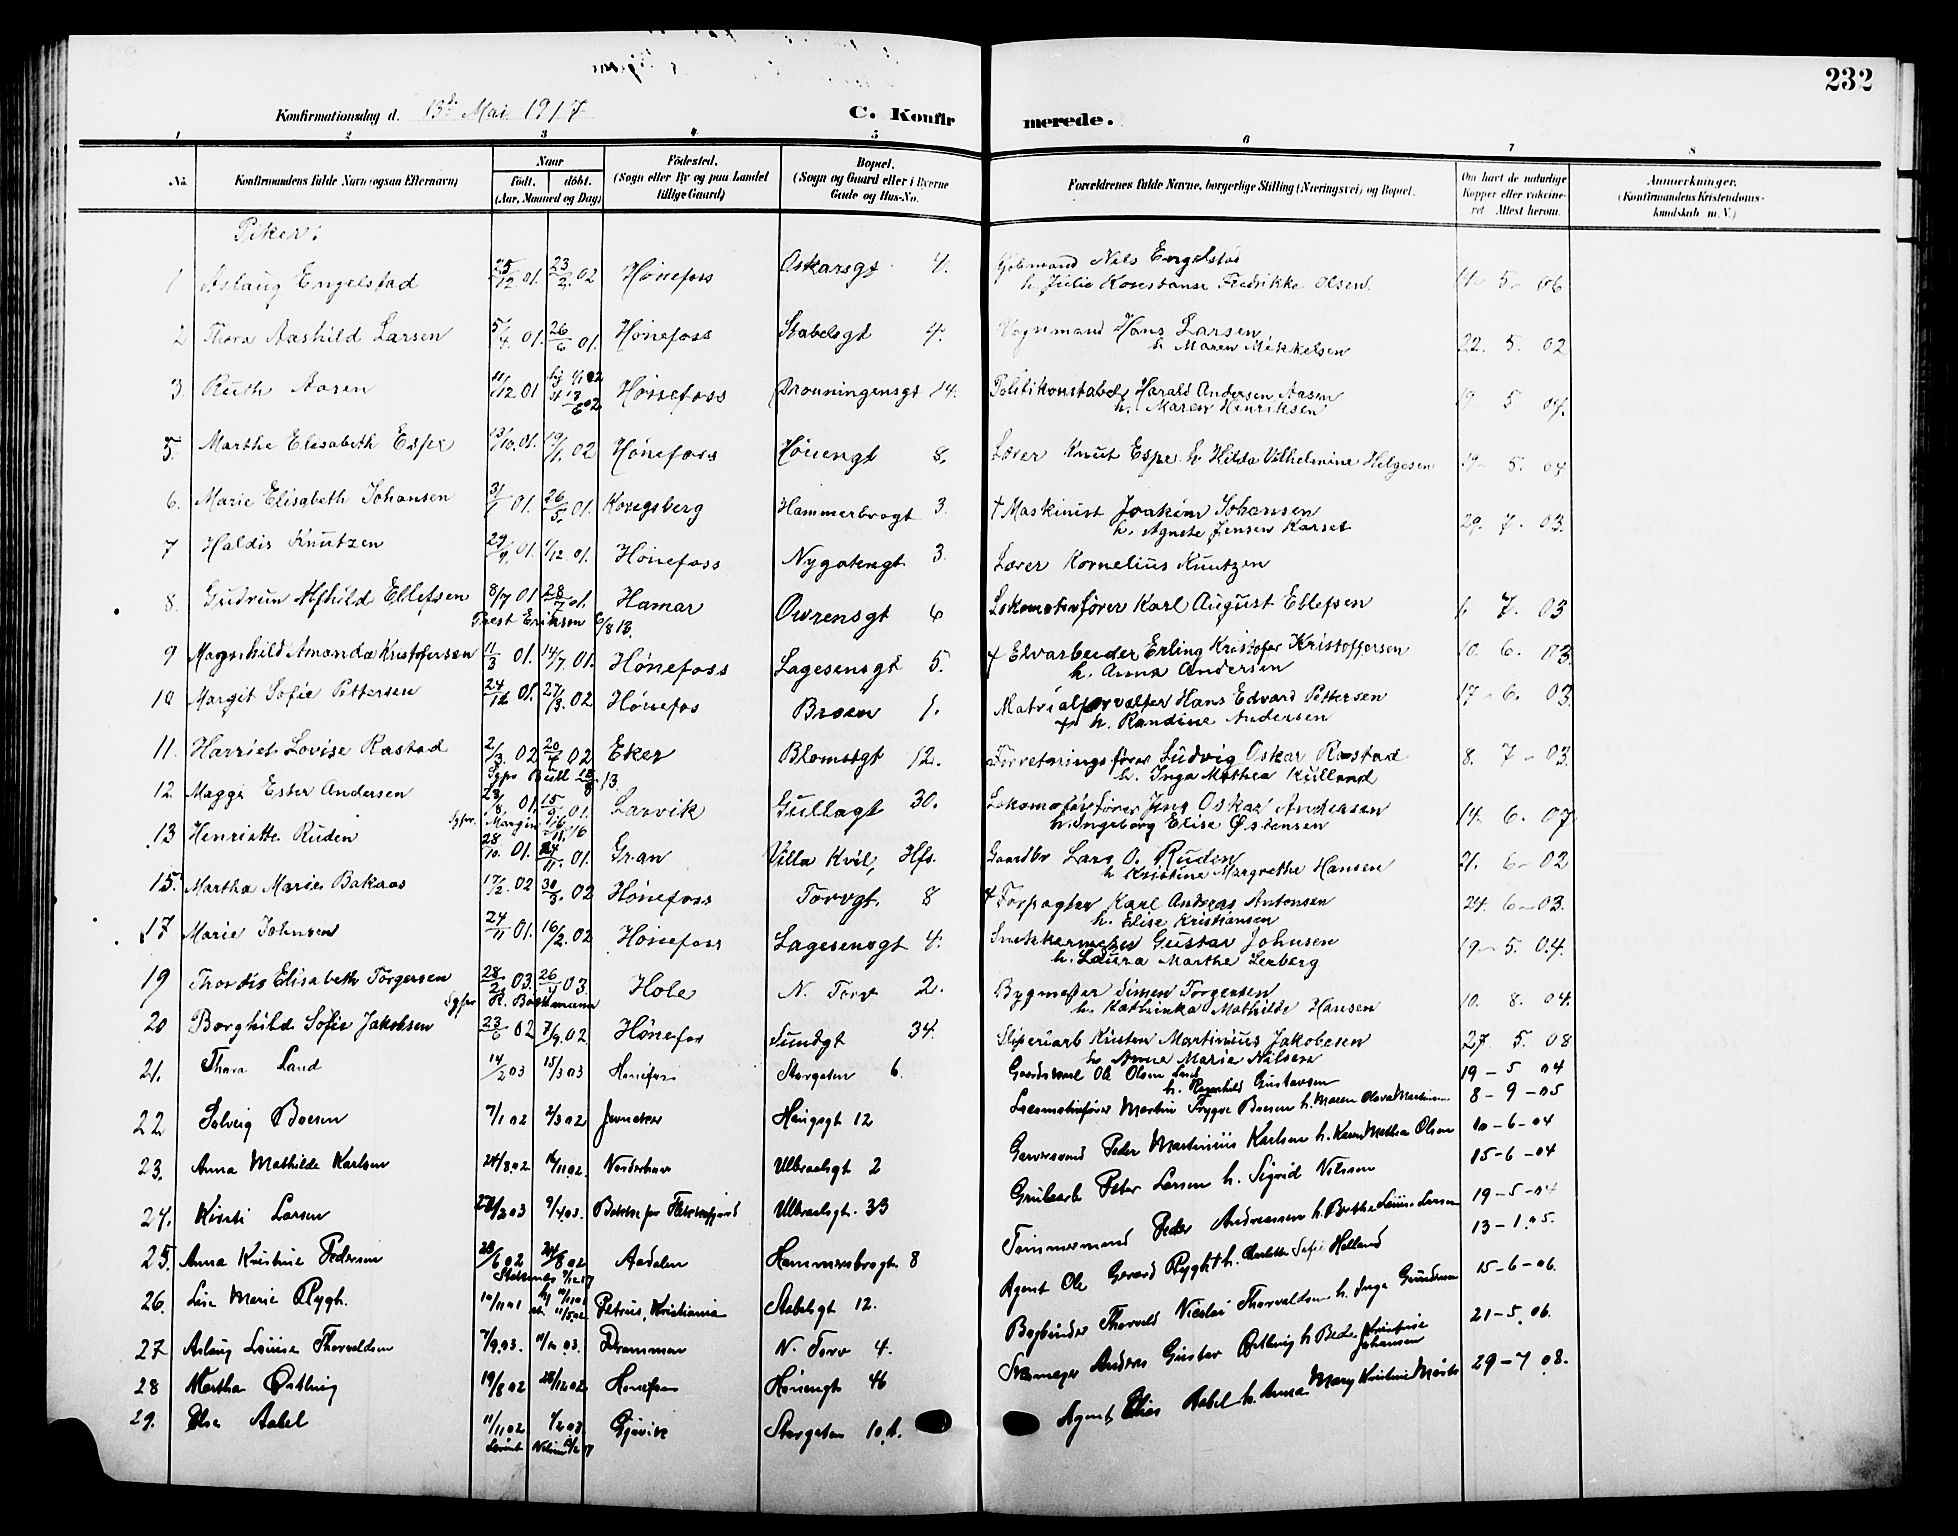 232
Konfirmationsdag d. 13de Mai 1917 C. Konfirmerede.
1 2 3 4 5 6 7 8
No. Konfirmandens fulde Navn (ogsaa Efternavn) Naar født. døbt. (Aar, Maaned og Dag) Fødested. (Sogn eller By og paa Landet tillige Gaard) Bopæl. (Sogn og Gaard eller i Byerne Gade og Hus-No. Forældrenes fulde Navne, borgerlige Stilling (Næringsvei) og Bopæl. Om havt de naturlige Kopper eller vakcineret Attest herom. Anmerkninger. (Konfirmandens Kristendomskundskab m. V.)
Piker:
1 Aslaug Engelstad 25/12 01. 23/2. 02 Hønefoss Oskarsgt 4. Nils Engelstad
h. Julie Konstanse Fredrikke Olsen. 11- 5- 06
2 Thora Aashild Larsen 5/4. 01. 26/6 01. Hønefoss Stabelsgt 4. Vognmand Hans Larsen
h. Maren Mikkelsen 22. 5. 02
3. Ruth Aasen 11/12 01 Hønefoss Dronningensgt 14. Politikonstabel Harald Andersen Aasen
h. Maren Henriksen 19 5 04.
5. Marthe Elisabeth Espe 13/10. 01. 19/1. 02 Hønefoss Hønengt 8. Lærer Knut Espe h. Hilda Vilhelmine Helgesen 19- 5. 04
6. Marie Elisabeth Johansen 31/1 01. 26/5. 01. Kongsberg Hammerbrogt 3. † Maskinist Joakim Johansen
h. Agnete Jensen Karset 29. 7. 03.
7 Haldis Knutzen 29/9. 01. 1/12. 01. Hønefoss Nygatengt. 3. Lærer Kornelius Knutzen
8. Gudrun Alfhild Ellefsen 8/7 01. 28/7 01. Hamar Owrensgt 6 Lokomotivfører Karl August Ellefsen 1. 7. 03
Prest Eriksen 6/8 13.
9 Magnhild Amanda Kristofersen 11/3 01. 14/7 01. Hønefoss Lagesensgt 5. † Elvarbeider Erling Kristofer Kristoffersen
h. Anna Andersen 10. 6. 03.
10 Margit Sofie Pettersen 24/12 01. 27/3. 02 Hønefos Broen 1. Matrialforvalter Hans Edvard Pettersen
† h. Randine Andersen 17- 6. 03.
11. Harriet Lovise Rastad 2/3. 02 20/7 02 Eker Blomstgt 12. Forretningsfører Ludvig Oskar Rastad
h. Inga Mathea Kulland 8. 7- 03.
12. Maggi Ester Andersen 28/8. 01. 15/9. 01. Larvik Gullagt 30. Lokomotivfører Jens Oskar Andersen
h. Ingeborg Elise Østensen 14. 6. 07
13 Henriette Ruden 28/10. 01. 24/11. 01. Gran Villa Kvil, Hfs. Gaardbr Lars O. Ruden
h Kristine Margrethe Hansen 21. 6- 02
15. Martha Marie Bakaas 17/2. 02 30/3. 02 Hønefoss Torvgt. 8 † Forpagter Karl Andreas Antonsen
h. Elise Kristiansen 24. 6- 03.
17 Marie Johnsen 24/11 01. 16/2. 02 Hønefoss Lagesensgt 4. Snekkermester Gustav Johnsen
h. Laura Marthe Lerberg 19- 5. 04.
19 Thordis Elisabeth Torgersen 28/2 03. 26/4 03. Hole N. Torv 2. Bygmester Simen Torgersen
h. Kathinka Mathilde Hansen 10. 8. 04.
20 Borghild Sofie Jakobsen 23/6 02 7/9. 02. Hønefos Sundgt 34. Sliperiarb Kristen Martinius Jakobesen
h. Anne Marie Nilsen 27. 5. 08
21. Thora Sand 14/2 03 15/3 03 Hønefos Storgaten 6. Ole Olsen Sand
h. Ragnhild Gustavsen 19 - 5 04
22 Solveig Boesen 7/1 02 2/3 02 Jevnaker Haugsgt 12 Locomotivfører Martin Trygve Boesen h. Maren Olava Martinsen 8 - 9 - 05
23. Anna Mathilde Karlsen 24/8. 02 16/11. 02. Norderhov Ullraalsgt 2 Peder Martinius Karlsen h. Karen Mathea Olsen 10 - 6 - 04
24. Kirsti Larsen 9/4 03. Ullraalsgt. 33 Grubearb Peter Larsen h. Sigrid Nilssen 15 - 6 - 04
25. Anna Kristine Pedersen 28/6 02 24/8 02 Aadalen Hammersbrogt 8 Tømmermand Peder Andreassen h. Berthe Louise Larsen 19 - 5 - 04
26. Lise Marie Rygh. 10/11 01 Petrus, Kristiania Stabelsgt 12. Agent Ole Gerard Rygh † h. Charlotte Sofie Helland 13 - 1. 05.
27 Aslaug Louise Thorvaldsen 7/9. 03. 11/10. 03. Drammen N. Torv 4. Bogbinder Thorvald Nicolai Thorvaldsen h. Inga Gundersen 15 - 6 - 06.
28 Martha Østbvig 19/8 02 28/12 02 Hønefoss Hønengt 46 Skomager Anders Gustav Østbvig h. Bede Kristine Johansen 21 - 5. 06.
29. Else Aabel 11/11 02 1/2 03. Gjøvik Storgaten 10. A. Agent Elias Aabel h. Anna Mary Kristine 29 - 7 08.